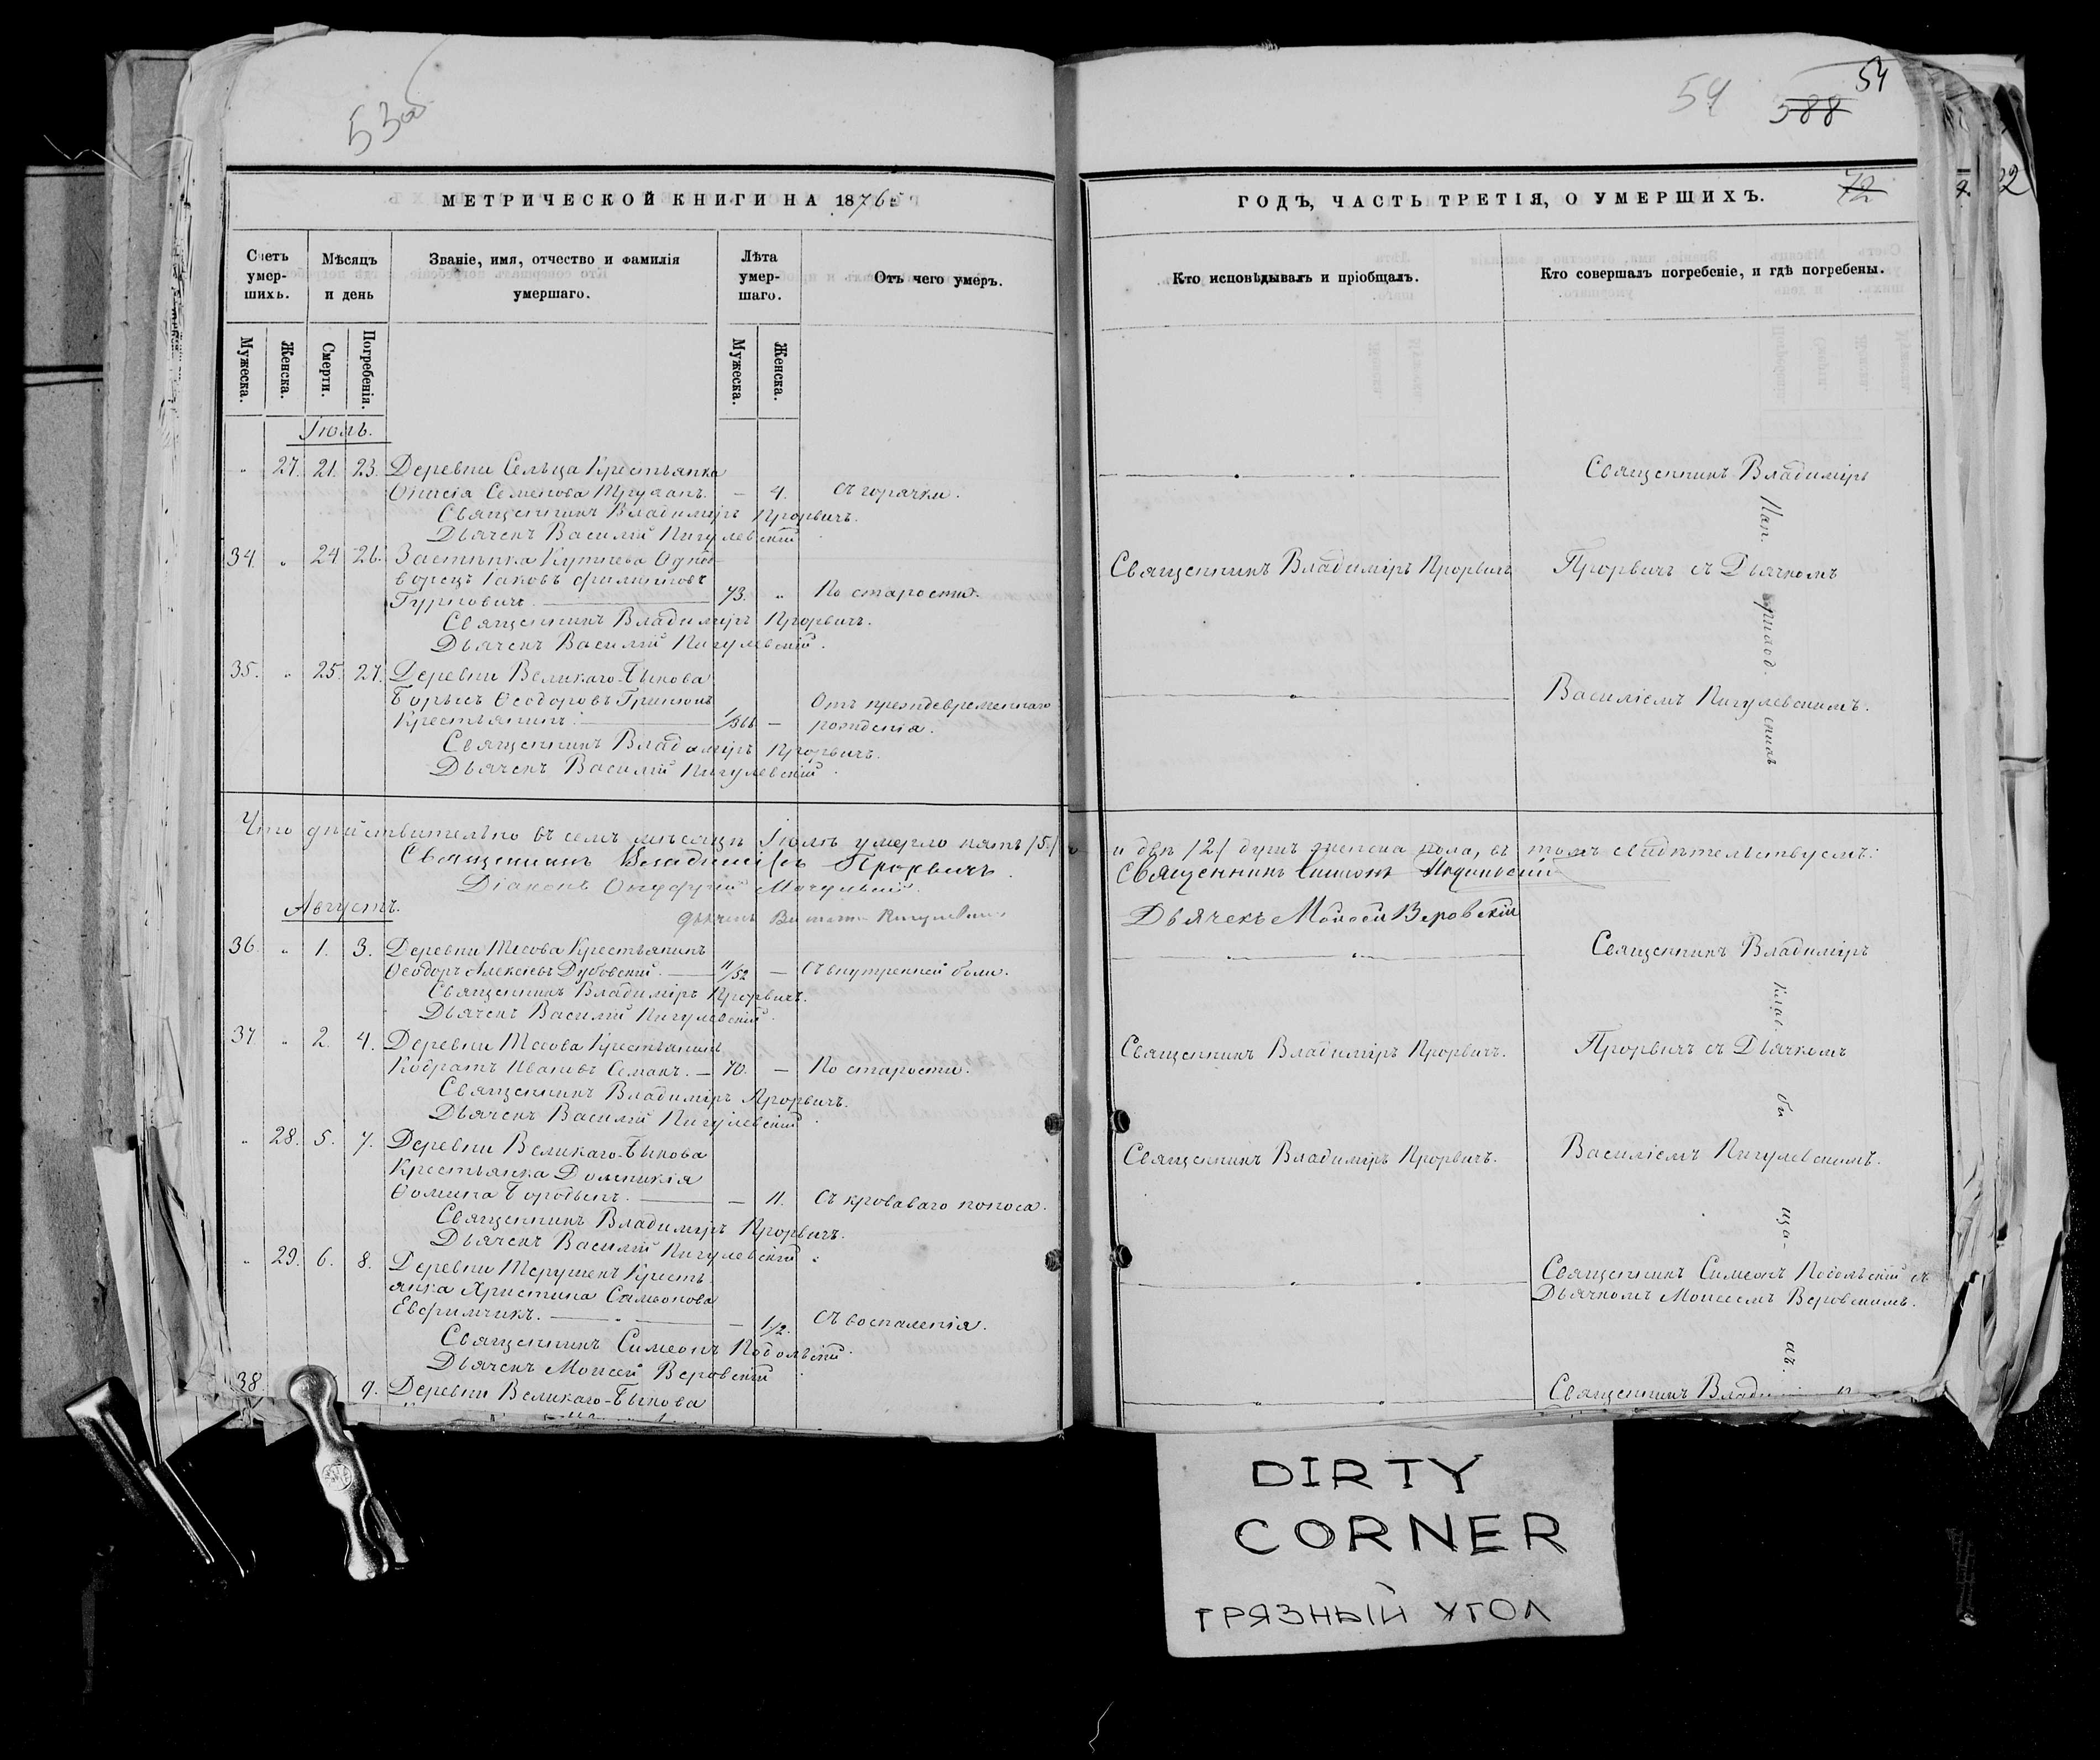 53об
54
588
54
72
МЕТРИЧЕСКОЙ КНИГИ НА 1876
ГОДЪ, ЧАСТЬ ТРЕТІЯ, О УМЕРШИХЪ.
Счетъ умер-шихъ.
Мѣсяцъ и день
Званіе, имя, отчество и фамилія умершаго.
Лѣта умер-шаго.
Отъ чего умеръ.
Кто исповѣдывалъ и пріобщалъ.
Кто совершалъ погребеніе, и гдѣ погребены.
Мужеска.
Женска.
Смерти.
Погребенія.
Мужеска.
Женска.
Іюль.
" 27. 21. 23. Деревни Сельца Крестьянка
Семенова – 4. Съ горячки.
Священникъ Владиміръ Прорвичъ.
Дьячекъ Василій Пигулевскій
Священникъ Владиміръ
34. " 24 26. Застѣнка Одно-
ворецъ Іаковъ
73. " По старости.
Священникъ Владиміръ Прорвичъ.
Дьячекъ Василій Пигулевскій.
Священникъ Владиміръ Прорвичъ
Прорвичъ съ Дьячкомъ
35. " 25. 27. Деревни Великаго-Быкова
Борисъ Ѳеодоровъ Гринюкъ
Крестьянинъ. 1/366 – Отъ преждевременнаго
рожденія.
Священникъ Владиміръ Прорвичъ.
Дьячекъ Василій Пигулевскій.
Василіемъ Пигулевскимъ.
Что дѣйствительно въ семъ мѣсяцѣ Іюлѣ умерло пять /5/
и двѣ /2/ душъ женска пола, въ томъ свидѣтельствуемъ:
Священникъ Владиміръ Прорвичъ.
Діаконъ Онуфрій
Дьячекъ Василій Пигулевскій
Священникъ Симеонъ
Дьячекъ Моисей Веровскій
Августъ.
36. " 1. 3. Деревни Тесова Крестьянинъ
Ѳеодоръ Алексѣевъ Дубовскій. 11/52 – Съ внутренней боли.
Священникъ Владиміръ Прорвичъ.
Дьячекъ Василій Пигулевскій.
Священникъ Владиміръ
37. " 2. 4. Деревни Тесова Крестьянинъ
Кодратъ Ивановъ Семакъ. – 70. – По старости.
Священникъ Владиміръ Прорвичъ.
Дьячекъ Василій Пигулевскій.
Священникъ Владиміръ Прорвичъ.
Прорвичъ съ Дьячкомъ
" 28. 5. 7. Деревни Великаго-Быкова
Крестьянка Домникія
Ѳомина Бородичъ. – 11. Съ кроваваго поноса.
Священникъ Владиміръ Прорвичъ.
Дьячекъ Василій Пигулевскій.
Священникъ Владиміръ Прорвичъ.
Василіемъ Пигулевскимъ.
" 29. 6. 8. Деревни Терушекъ Кресть-
янка Христина Симеонова
Евфимчикъ. – 1/2. Съ воспаленія.
Священникъ Симеонъ Подольскій.
Дьячекъ Моисей Веровскій.
Священникъ Симеонъ Подольскій съ
Дьячкомъ Моисеемъ Веровскимъ.
38. 9. Деревни Великаго-Быкова
Священникъ
DIRTY
CORNER
ГРЯЗНЫЙ УГОЛ